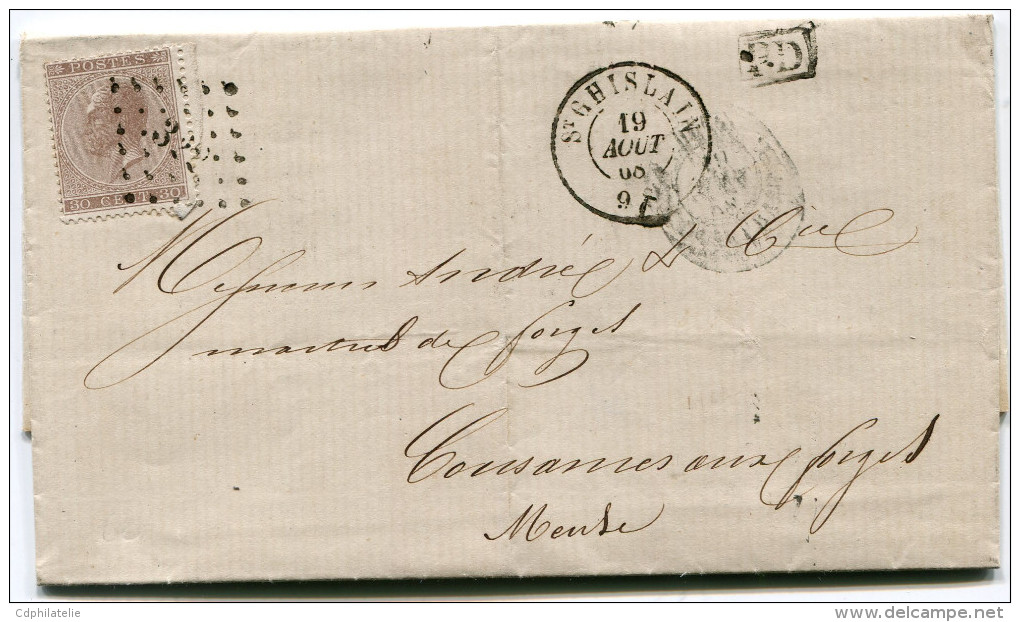 POSTES
30 CENT. 30
ST GHISLAIN
19
AOUT
68
9
P.D
Messieurs André & Cie
maitres de forges
Cousances aux forges
Meuse
Cdphilatelie
www.delcampe.net